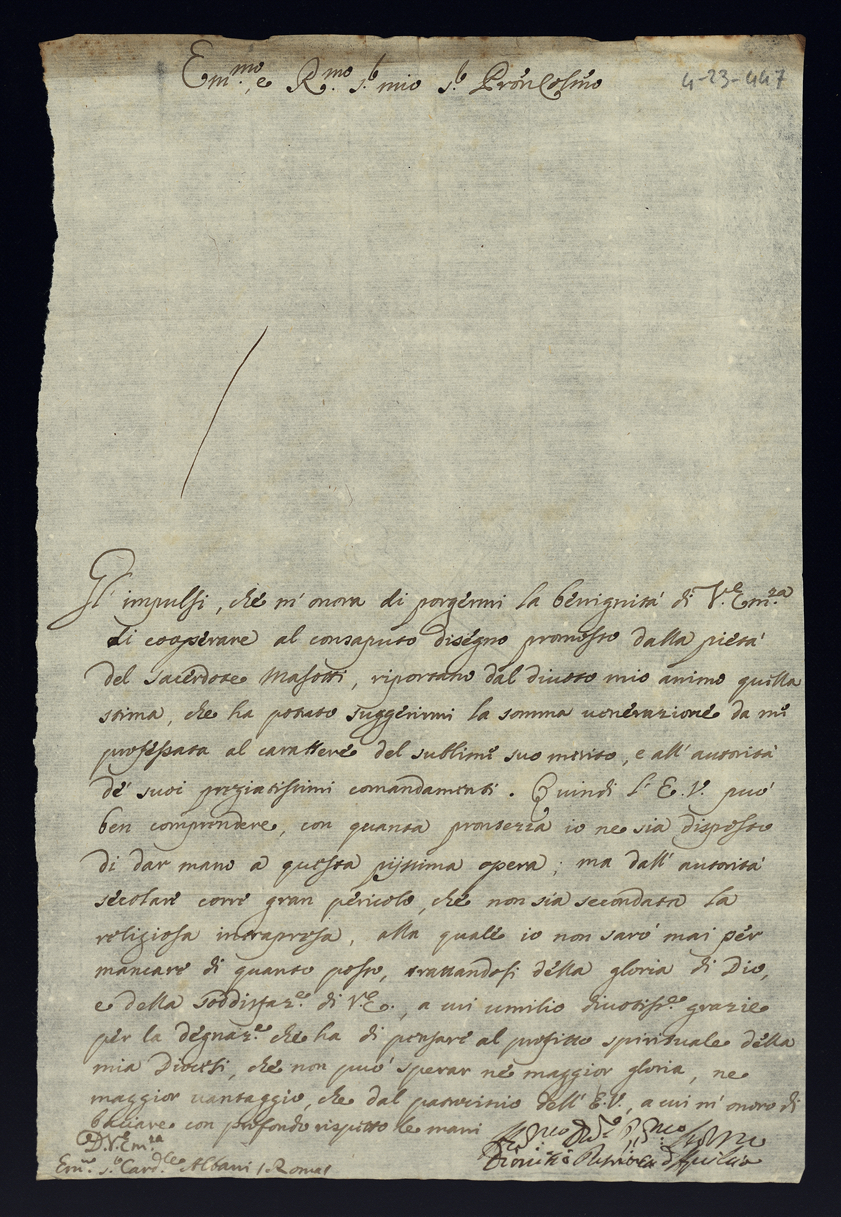 Em.mo, e R.mo s.r mio s.r Pron Cosmo
4-23-447
Gl' impulsi, che m' onora di porgermi la benignità di V.E.Em.za
di cooperare al consaputo disegno promosso dalla pietà
del sacerdote Masotti, riportano dal divoto mio animo quella
stima, che ha potuto suggerirmi la somma venerazione da me
professata al carattere del sublime suo merito, e all' autorità
de' suoi pregiatissimi comandamenti. Quindi l' E.V. può
ben comprendere, con quanta prontezza io ne sia disposto
di dar mano a questa pijssima opera; ma dall' autorità
secolare corre gran pericolo, che non sia secondata la
religiosa intrapresa, alla quale io non sarò mai per
mancare di quanto posso, trattandosi della gloria di Dio,
e della soddisfaz.e di V.E., a cui umilio divotiss.e grazie
per la degnaz.e che ha di pensare al profitto spirituale della
mia Diocesi, che non può sperar ne maggior gloria, ne
maggior vantaggio, che dal patrocinio dell' E.V., a cui m' onoro di
baciare con profondo rispetto le mani
D.V.Em.za
Em.o s.r Card.le Albani / Roma
Patriarca d'Aquileia